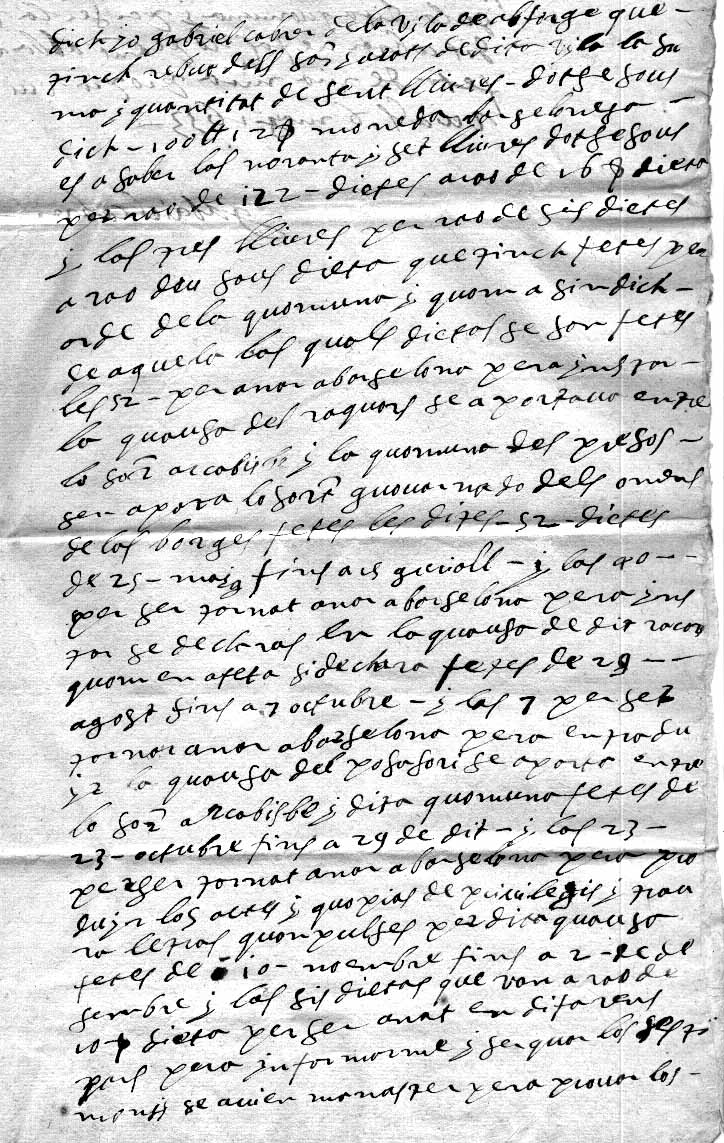 dich yo gabriel cabrer de la vila de les borges que-
tinch rebut dells sors jurats de dita vila la su
ma y quantitat de sent lliures - dotse sous
dich - 100 ll 12 s moneda barselonesa -
es a saber las noranta y set lliures dotse sous
per rao de 122 - dietes a rao de 16 s dieta
y las tres lliures per rao de sis dietes
a rao deu sous dieta que tinch fetes per
orde de la quomuna y quom a sindich -
de aquela las quals dietas se son fetes
les 52 - per anar a barselona pera ynstar -
la quausa des que se aportava entre
lo sor arcabisbe y la quomuna des presos -
sen aporta lo sort governado dels
de las borges fetes les dites - 52 - dietes
de 25 - maig fins a 15 guioll - y las 40 --
per ser tornat anar a barselona pera yns
tar se declaras en la quausa de dit
quom en afeta si declara fetes de 29 --
agost fins a 7 octubre - y las 7 per ser
tornar anar a barselona pera entradu
yr la quausa del se aporta entre
lo sor arcabisbe y dita quomuna fetes de
23 - octubre fins a 29 de dit - y las 23 -
per ser tornat anar a barselona pera pro
duyr los actes y quopias de privilegis y trau
ra letras quonpulses per dita quausa
fetes de 10 - noembre fins a 2 - de de
sembre y las sis dietas que van a rao de
10 s dieta per ser anat en difarens
pars pera ynformarme y serquar los testi
monis se avien manaster pera provar los -